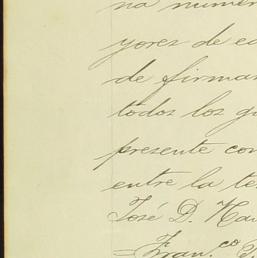 na numer
yores de e
de firma
todos los q
presente con
entre la te
José D. Na
=Fran.co